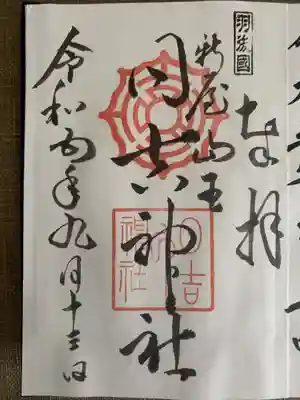 羽後國
奉拝
新屋山王
日吉神社
日吉
神社
令和四年九月十三日